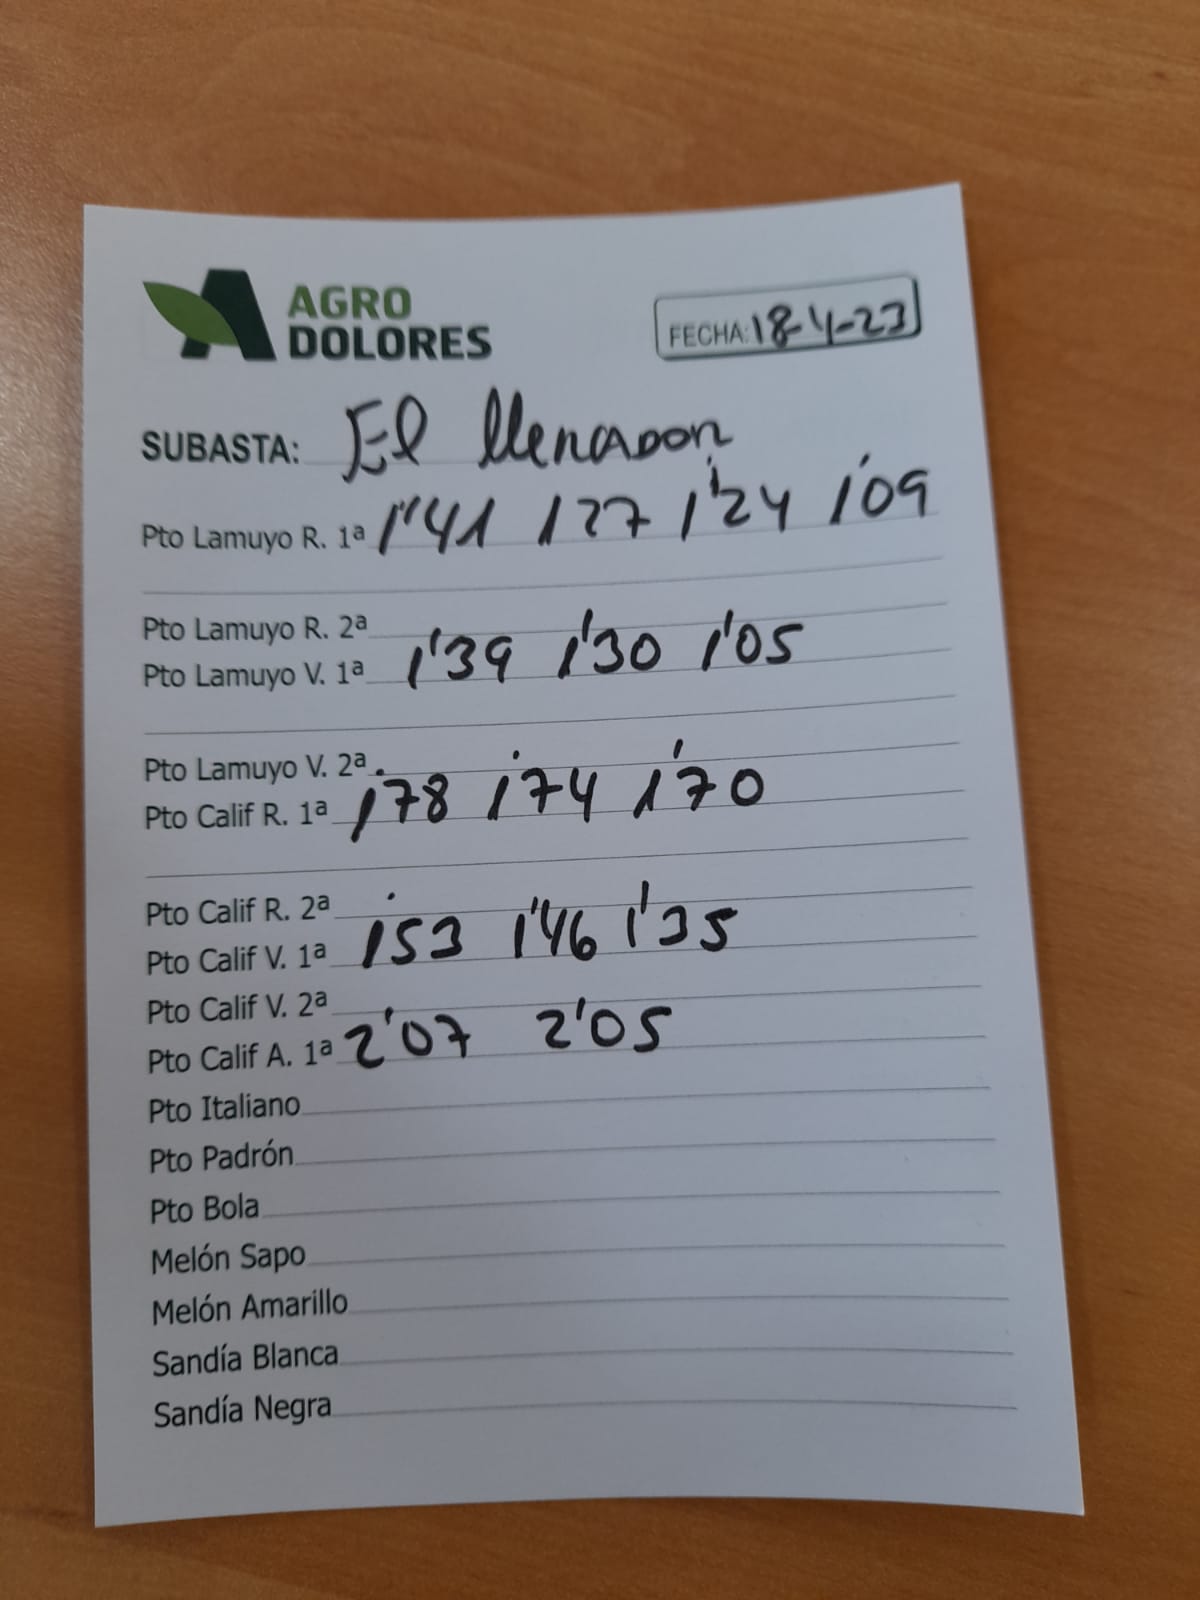 AGRO
DOLORES
FECHA: 18-4-23
SUBASTA: El llenador
Pto Lamuyo R. 1ª 1'41 1'27 1'24 1'09
Pto Lamuyo R. 2ª
Pto Lamuyo V. 1ª 1'39 1'30 1'05
Pto Lamuyo V. 2ª
Pto Calif R. 1ª 1'78 1'74 1'70
Pto Calif R. 2ª
Pto Calif V. 1ª 1'53 1'46 1'35
Pto Calif V. 2ª
Pto Calif A. 1ª 2'07 2'05
Pto Italiano
Pto Padrón
Pto Bola
Melón Sapo
Melón Amarillo
Sandía Blanca
Sandía Negra